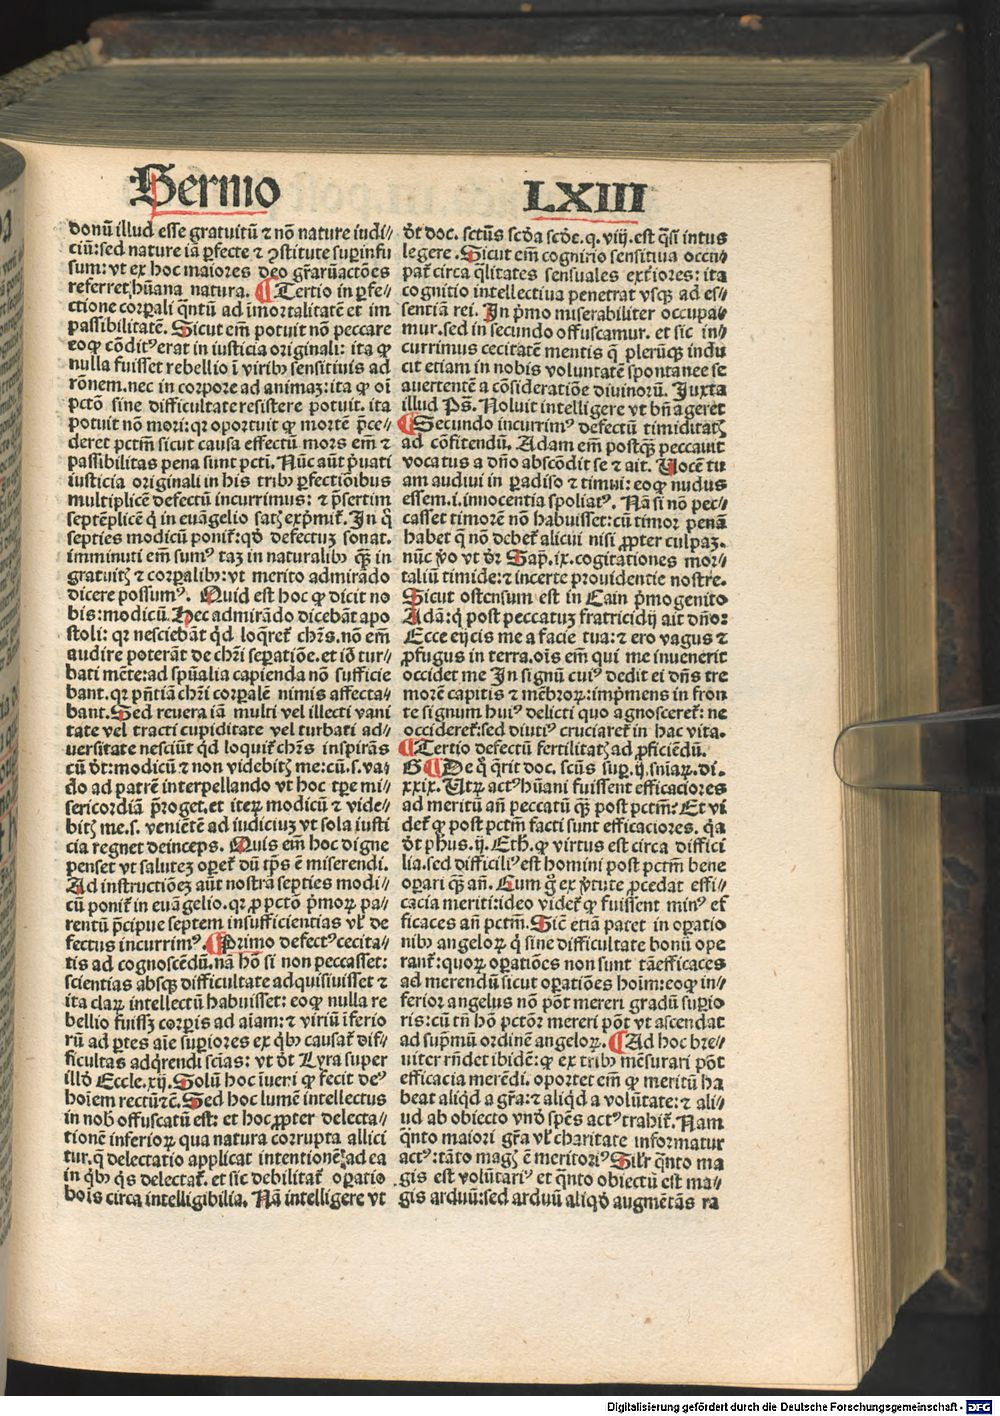 Sermo LXIII
donū illud esse gratuitū ⁊ nō nature iudi⸗
ciū: sed nature iā ꝑfecte ⁊ ꝯstitute superinfu
sum: vt ex hoc maiores deo gr̄aruꝫactōes
referret hūana natura. ¶ Tertio in ꝑfe⸗
ctione corꝑali qn̄tū ad īmortalitatē et im
passibilitatē. Sicut em̄ potuit nō peccare
eoꝙ cōditꝰ erat in iusticia originali: ita ꝙ
nulla fuisset rebellio ī virib sensitiuis ad
rōnem. nec in corpore ad animaꝫ: ita ꝙ oī
pctō sine difficultate resistere potuit. ita
potuit nō mori: qr oportuit ꝙ mortē p̄ce⸗
deret pctm̄ sicut causa effectū mors em̄ ⁊
passibilitas pena sunt pcti. Nūc aūt p̄uati
iusticia originali in his trib ꝑfectiōibus
multiplicē defectū incurrimus: ⁊ p̄sertim
septēplicē q̇ in euāgelio satꝫ exp̄mit̄. In q̇
septies modicū ponit̄: qđ defectuꝫ sonat.
imminuti em̄ sumꝰ taꝫ in naturalib qꝫ in
gratuitꝭ ⁊ corꝑalib: vt merito admirādo
dicere possumꝰ. Quid est hoc ꝙ dicit no
bis: modicū. Hec admirādo dicebāt apo
stoli: qr nesciebāt qd loqret̄ chr̄s. nō em̄
audire poterāt de chr̄i seꝑatiōe. et iō tur⸗
bati mēte: ad spūalia capienda nō sufficie
bant. qr pn̄tiā chr̄i corꝑalē nimis affecta⸗
bant. Sed reuera iā multi vel illecti vani
tate vel tracti cupiditate vel turbati ad⸗
uersitate nesciūt qd loquit̄ chr̄s inspirās
cū dt̄: modicū ⁊ non videbitꝭ me: cū. s. va⸗
do ad patrē interpellando vt hoc tꝑe mi⸗
sericordiā p̄roget. et iteꝝ modicū ⁊ vide⸗
bitꝭ me. s. veniētē ad iudiciuꝫ vt sola iusti
cia regnet deinceps. Quis em̄ hoc digne
penset vt saluteꝫ oꝑet̄ dū tp̄s ē miserendi.
Ad instructiōeꝫ aūt nostrā septies modi⸗
cū ponit̄ in euāgelio. qr ꝓ pctō p̄moꝝ pa⸗
rentū p̄cipue septem insufficientias vl̄ de
fectus incurrimꝰ. ¶ Primo defectꝰ cecita⸗
tis ad cognoscēdū. nā hō si non peccasset:
scientias absqꝫ difficultate adquisiuisset ⁊
ita claꝝ intellectū habuisset: eoꝙ nulla re
bellio fuissꝫ corꝑis ad aīam: ⁊ viriū īferio
rū ad ꝑtes aīe suꝑiores ex qb causat̄ dif⸗
ficultas adqrendi scīas: vt dt̄ Lyra super
illd Eccle. xij. Solū hoc īueni ꝙ fecit deꝰ
hoīem rectū ⁊c̄. Sed hoc lumē intellectus
in nob offuscatū est: et hoc ꝓpter delecta⸗
tionē inferioꝝ qua natura corrupta allici
tur. q̄ delectatio applicat intentionē ad ea
in qb qs delectat̄. et sic debilitat̄ oꝑatio
hoīs circa intelligibilia. Nā intelligere vt
dt̄ doc. sctūs scđa scđe. q. viij. est qsi intus
legere. Sicut em̄ cognitio sensitiua occu⸗
pat̄ circa qlitates sensuales exteriores: ita
cognitio intellectiua penetrat vsqꝫ ad es⸗
sentiā rei. In p̄mo miserabiliter occupa⸗
mur. sed in secundo offuscamur. et sic in⸗
currimus cecitatē mentis q̄ pleruqꝫ indu
cit etiam in nobis voluntatē spontanee se
auertentē a cōsideratiōe diuinorū. Juxta
illud Ps̄. Noluit intelligere vt bn̄ ageret
¶ Secundo incurrimꝰ defectū timiditatꝭ
ad cōfitendū. Adam em̄ postqꝫ peccauit
vocatus a dn̄o abscōdit se ⁊ ait. Vocē tu
am audiui in ꝑadiso ⁊ timui: eoꝙ nudus
essem. i. innocentia spoliatꝰ. Nā si nō pec⸗
casset timorē nō habuisset: cū timor penā
habet q̄ nō debet̄ alicui nisi ꝓpter culpaꝫ.
nūc ṽo vt dr̄ Sap̄. ix. cogitationes mor⸗
taliū timide: ⁊ incerte prouidentie nostre.
Sicut ostensum est in Cain p̄mogenito
Adā: q̇ post peccatuꝫ fratricidij ait dn̄o:
Ecce eijcis me a facie tua: ⁊ ero vagus ⁊
ꝓfugus in terra. oīs em̄ qui me inuenerit
occidet me In signū cuiꝰ dedit ei dn̄s tre
morē capitis ⁊ mēbroꝝ: imp̄mens in fron
te signum huiꝰ delicti quo agnosceret̄: ne
occideret̄: sed diutiꝰ cruciaret̄ in hac vita.
¶ Tertio defectū fertilitatꝭ ad ꝓficiēdū.
G ¶ De q̇ q̄rit doc. scūs suꝑ. ij. sniaꝝ. di.
xxix. Vtꝝ actꝰ hūani fuissent efficaciores
ad meritū an̄ peccatū qꝫ post pctm̄: Et vi
det̄ ꝙ post pctm̄ facti sunt efficaciores. qa
dt̄ phus. ij. Eth. ꝙ virtus est circa diffici
lia. sed difficiliꝰ est homini post pctm̄ bene
oꝑari qꝫ an̄. Cum g̊ ex ṽtute ꝓcedat effi⸗
cacia meriti: ideo videt̄ ꝙ fuissent minꝰ ef
ficaces an̄ pctm̄. Sic̄ etiā patet in oꝑatio
nib angeloꝝ q̇ sine difficultate bonū ope
rant̄: quoꝝ oꝑatiōes non sunt tā efficaces
ad merendū sicut oꝑatiōes hoīm: eoꝙ in⸗
ferior angelus nō pōt mereri gradū suꝑio
ris: cū tn̄ hō pctōr mereri pōt vt ascendat
ad sup̄mū ordinē angeloꝝ. ¶ Ad hoc bre⸗
uiter rn̄det ibidē: ꝙ ex trib mēsurari pōt
efficacia merēdi. oportet em̄ ꝙ meritū ha
beat aliqd a gr̄a: ⁊ aliqd a volūtate: ⁊ ali⸗
ud ab obiecto vnđ spēs actꝰ trahit̄. Nam
qn̄to maiori gr̄a vl̄ charitate informatur
actꝰ: tāto magꝭ ē meritoriꝰ Silr̄ qn̄to ma
gis est volūtariꝰ et qn̄to obiectū est ma⸗
gis arduū: sed arduū aliqđ augmētās ra
Digitalisierung gefördert durch die Deutsche Forschungsgemeinschaft - DFG